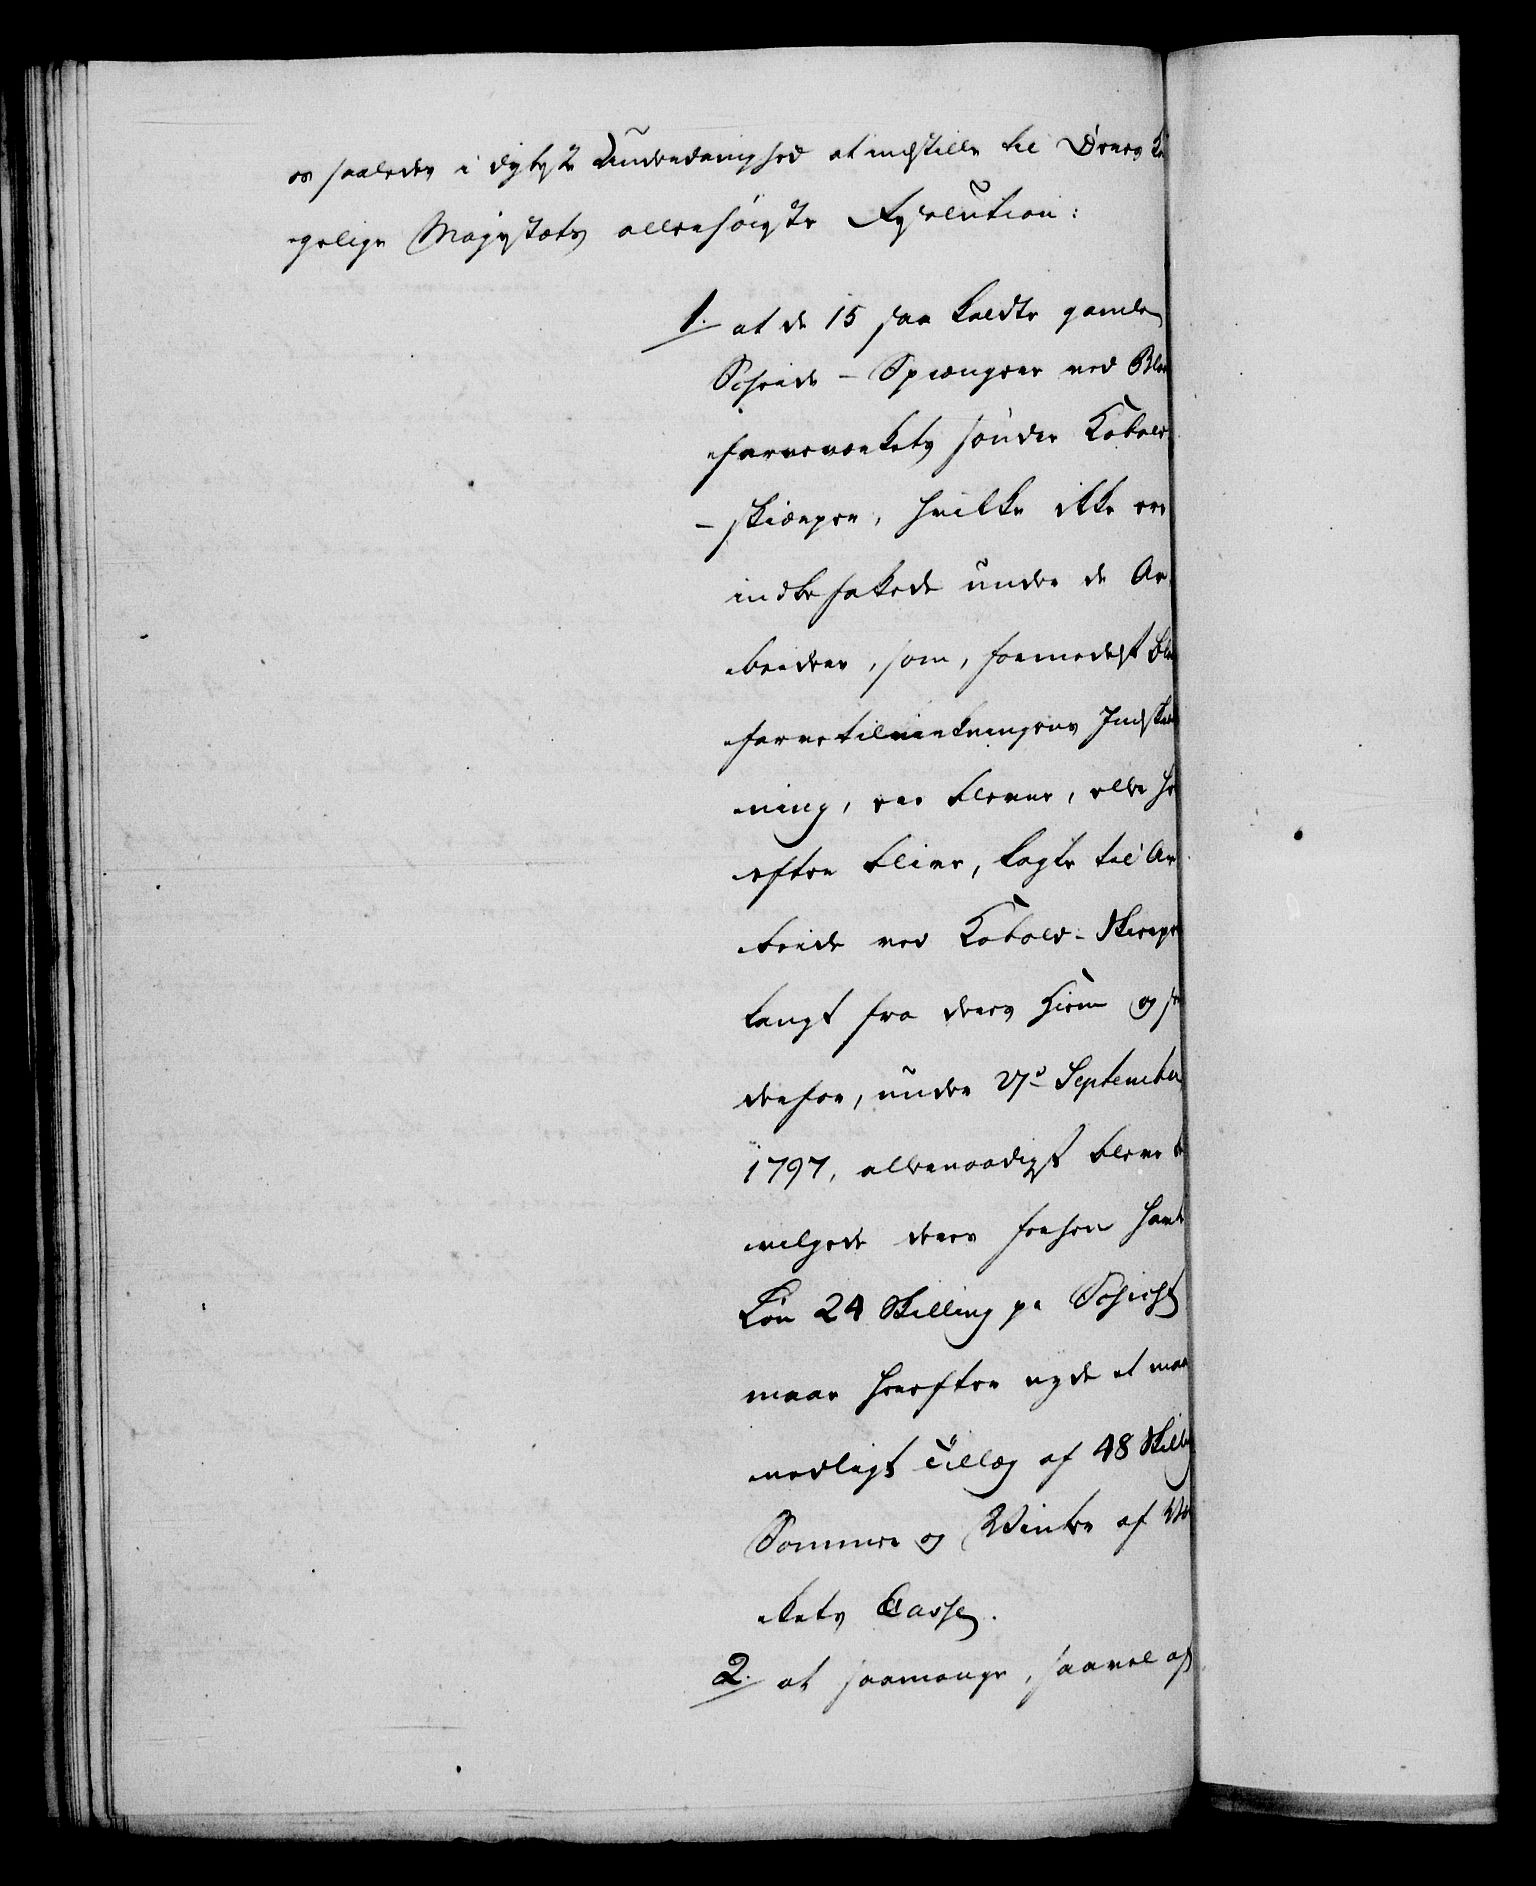 os saaledes i dybeste Underdanighed at indstille til Deres Ko
ngelige Majestæts allerhøieste Resolution:
1. at de 15 saa kaldte gamle
Scheide-Sprængere ved Bla
farveværkets søndre Kobolt
skiærper, hvilke ikke ere
indbefattede under de Ar
beidere, som, formedelst Bla
farvetilvirkningens Indskræ
ning, ere blevne, eller he
refter blive, lagte til Ar
beide ved Kobold-Skierpe
langt fra deres Hiem og so
derfor, under 27d September
1797, allernaadigst bleve be
vilgede deres forhen havte
Løn 24 Skilling pr Schicht
maae herefter nyde et maa
nedligt Tillæg af 48 Skilling
Sommer og Vinter af Vær
kets Casse.
2. at saamange, saavel af